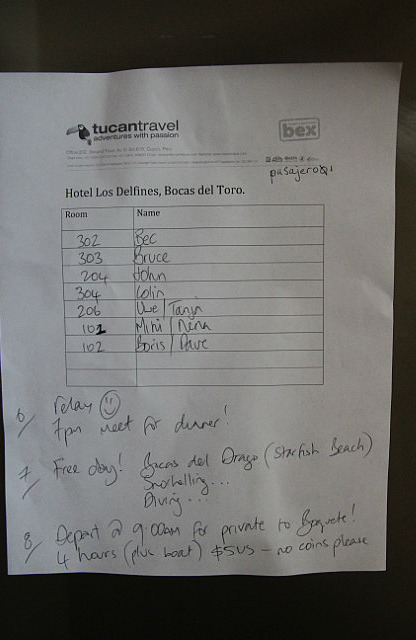 tucantravel
adventures with passion
bex
pasajero01
Hotel Los Delfines, Bocas del Toro.
Room Name
302 Bec
303 Bruce
204 John
304 Colin
206 Uwe / Tanja
102 Mimi / Nena
102 Boris / Dave
6/ relax
7pm meet for dinner!
7/ Free day! Bocas del Drago (Starfish Beach)
Snorkelling...
Diving...
8/ Depart @ 9:00am for private to Boquete!
4 hours (plus boat) $5US - no coins please